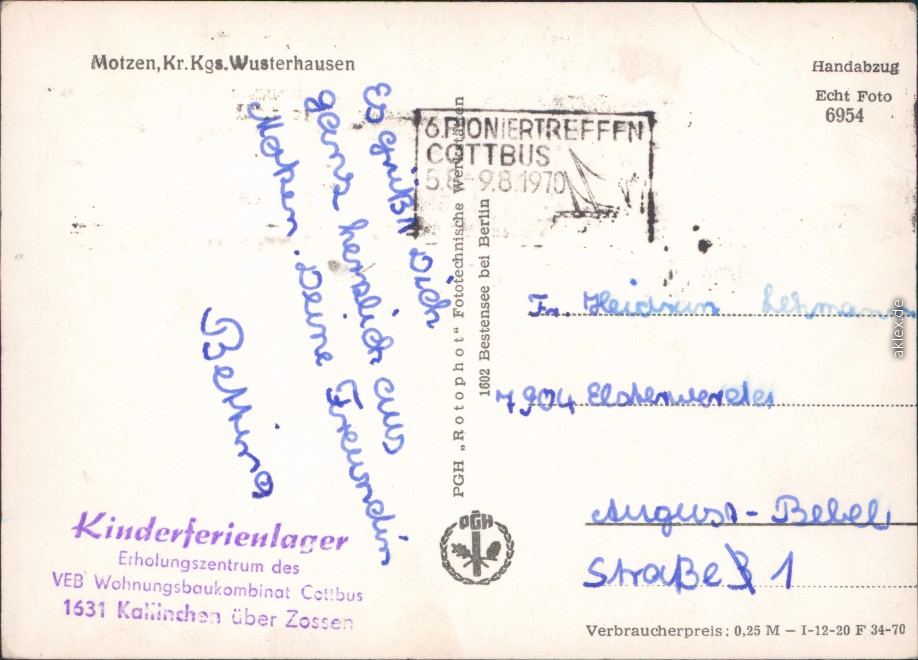 Motzen, Kr. Kgs. Wusterhausen
Es grüßt Dich
ganz herzlich aus
Motzen. Deine Freundin
Bettina
Kinderferienlager
Erholungszentrum des
VEB Wohnungsbaukombinat Cottbus
1631 Kallinchen über Zossen
PGH „Rotophot“ Fototechnische Werkstätten
1602 Bestensee bei Berlin
PGH
Handabzug
Echt Foto
6954
6. PIONIERTREFFEN
COTTBUS
5.8-9.8.1970
Fr. Heidrun Lehmann
7904 Elsterwerda
August-Bebel
Straße 1
Verbraucherpreis: 0,25 M — I-12-20 F 34-70
aklex.de